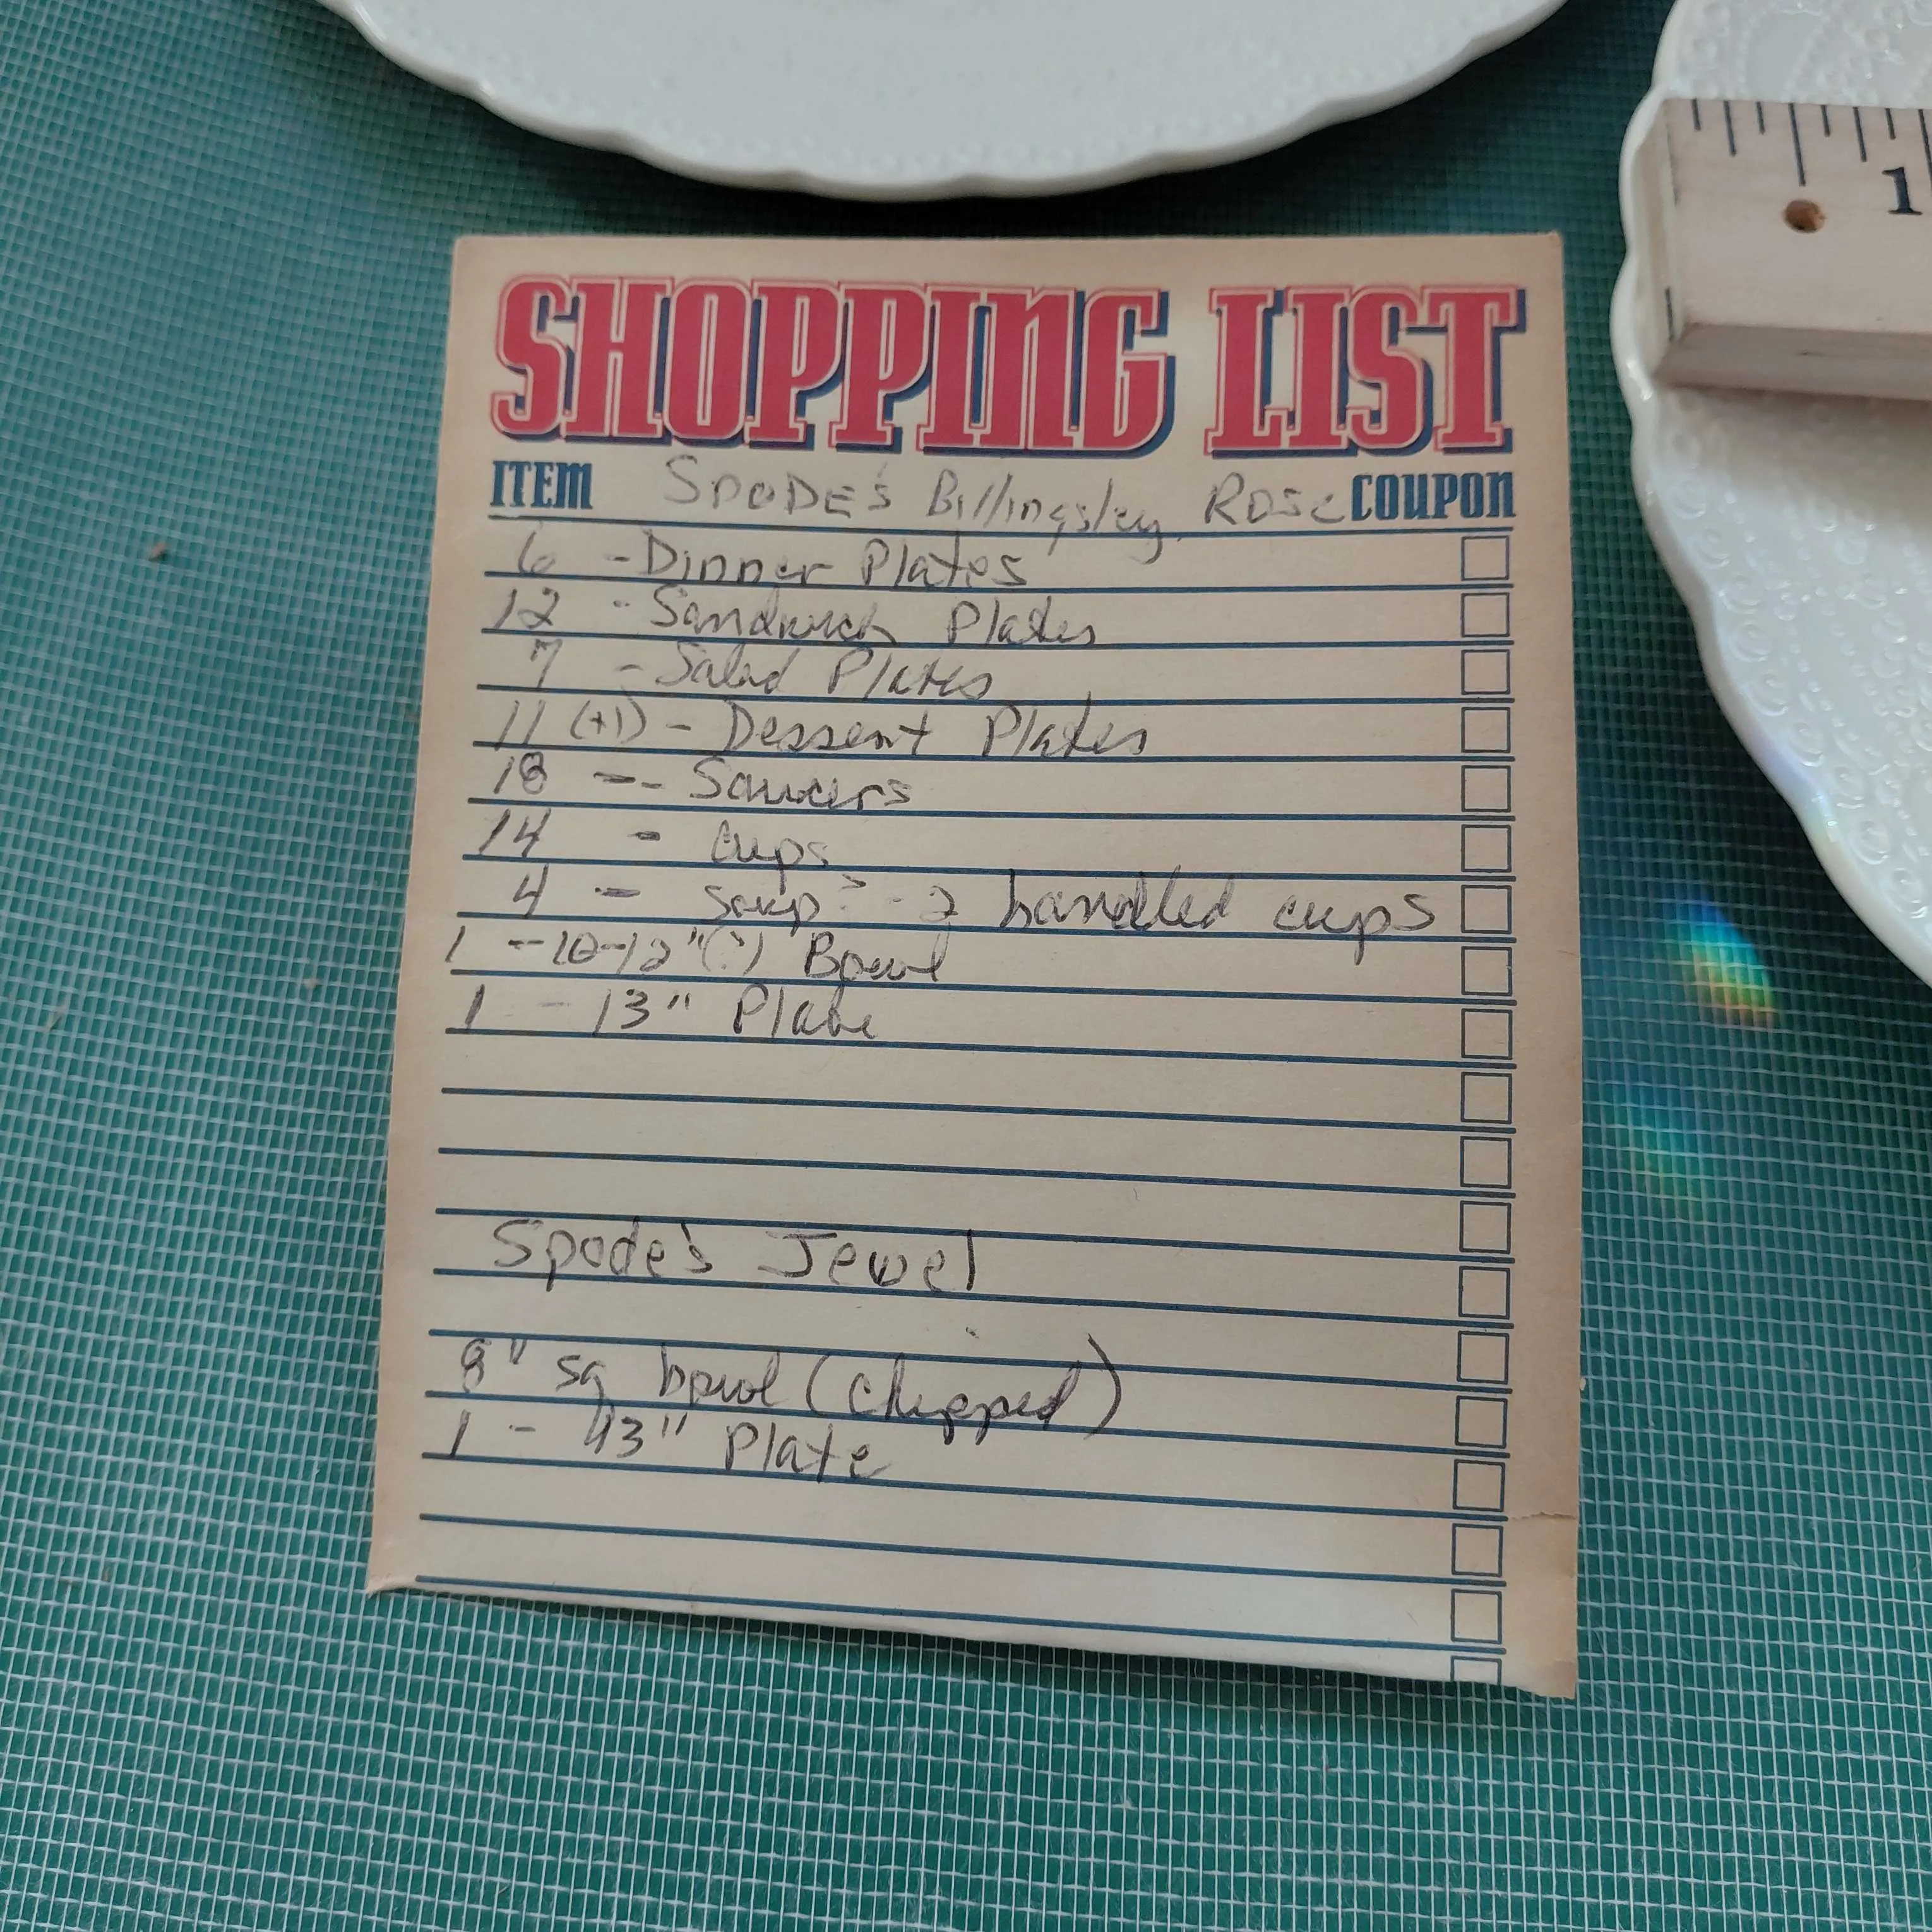 SHOPPING LIST
ITEM SPODE'S Billingsley Rose COUPON
6 - Dinner Plates
12 - Sandwich Plates
7 - Salad Plates
11 (+1) - Dessert Plates
18 -- Saucers
14 - cups
4 - soup - 2 handled cups
1 - 10-12" (?) Bowl
1 - 13" Plate
Spode's Jewel
8" sq bowl (chipped)
1 - 13" Plate
1